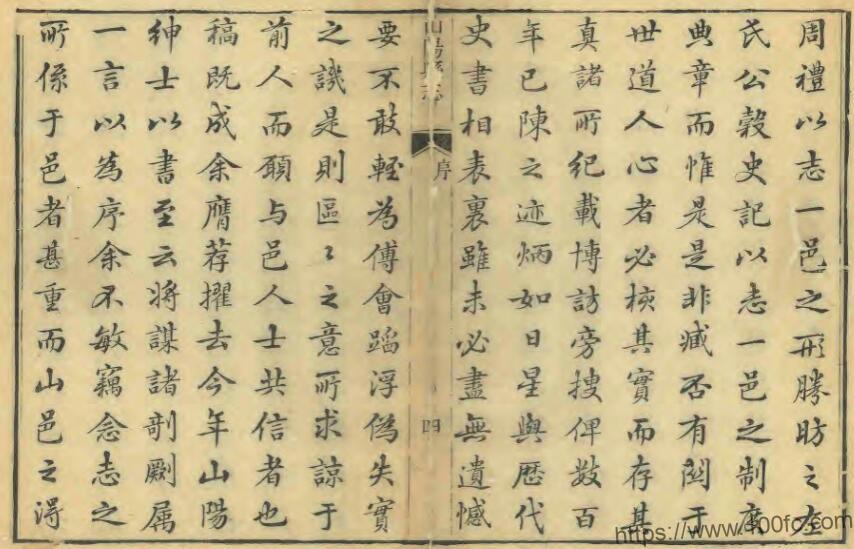 周禮以志一邑之形勝昉之左
氏公穀史記以志一邑之制度
典章而惟是是非臧否有関于
世道人心者必核其實而存其
真諸所紀載博訪旁搜俾數百
年已陳之迹炳如日星與歴代
史書相表裏雖未必盡無遺憾
山陽縣志
序
四
要不敢輕為傅會蹈浮偽失實
之譏是則區〻之意所求諒于
前人而願与邑人士共信者也
稿既成余膺荐擢去今年山陽
紳士以書至云將謀諸剞劂属
一言以為序余不敏竊念志之
所係于邑者甚重而山邑之得
https://www.400fc.com